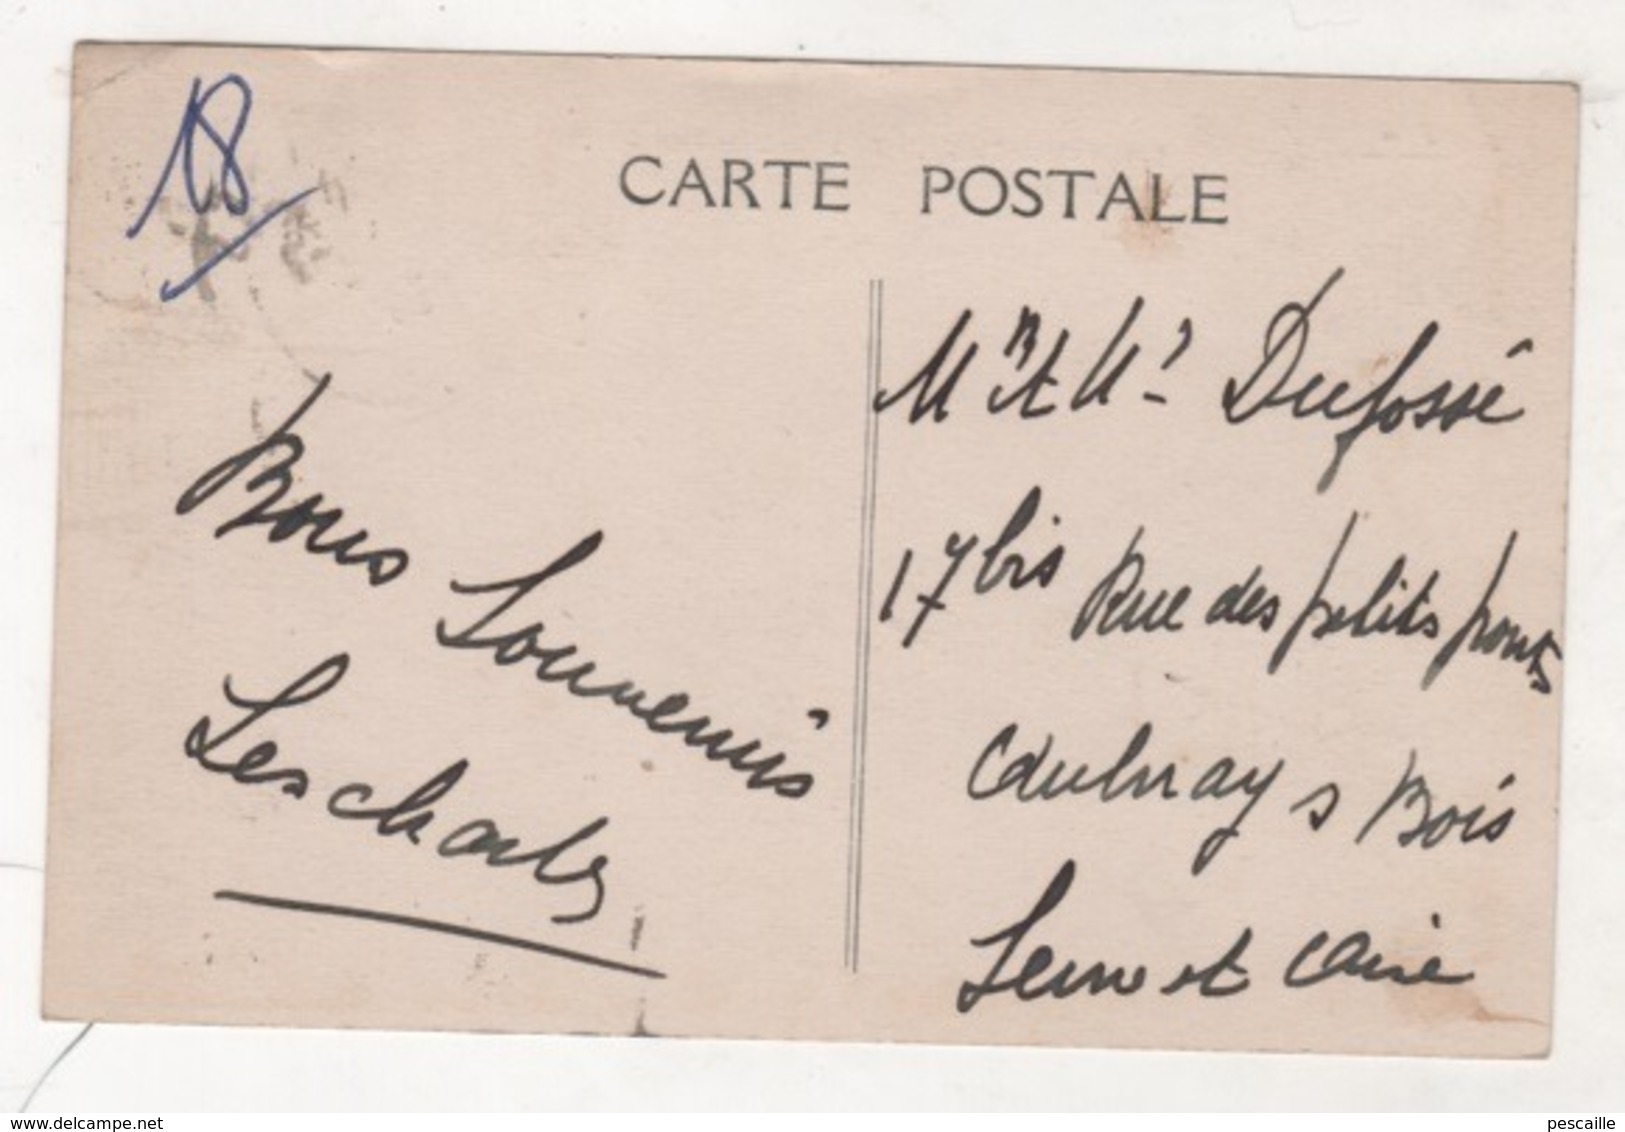 18
CARTE POSTALE
Bons Souvenirs
Les charles
Mr et Me Dufossé
17 bis Rue des petits ponts
Aulnay s Bois
Seine et Oise
www.delcampe.net
pescaille